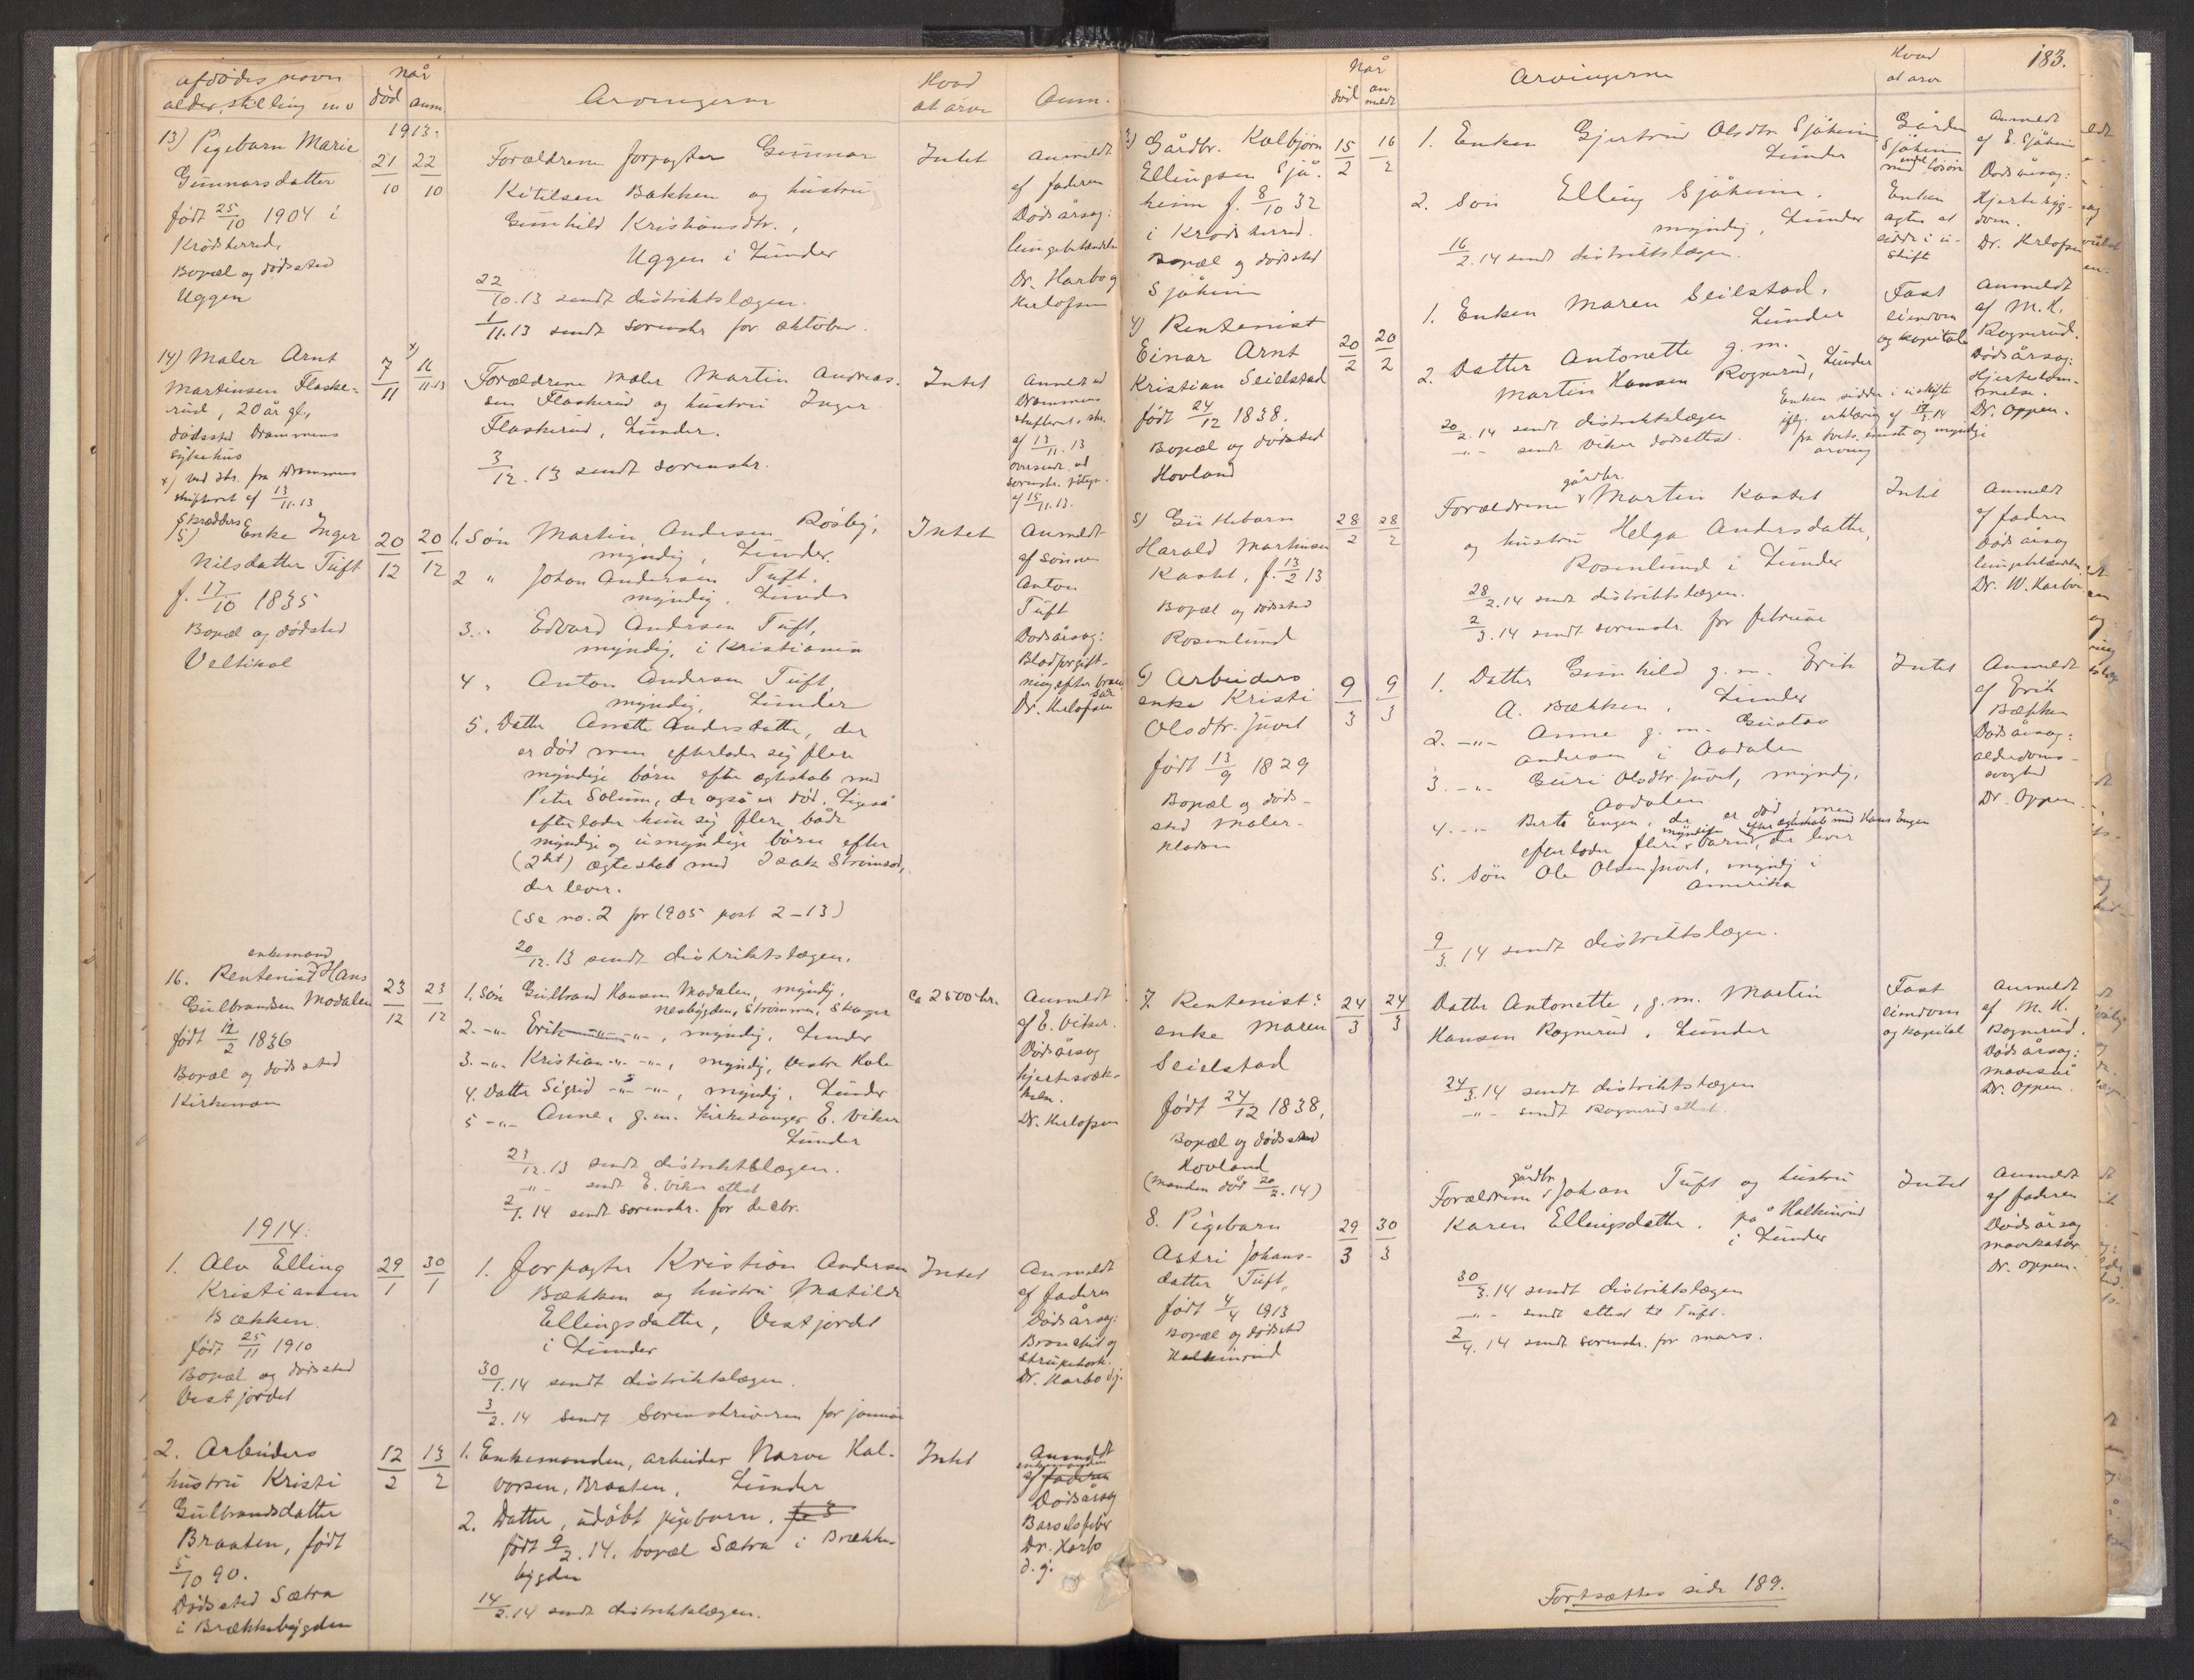 afdödes navn
alder, stilling m v
når
död anm.
Arvingerne
Hvad
at arve
Anm.
1913:
13) Pigebarn Marie
Gunnarsdatter
født 25/10 1904 i
Krødsherred.
Bopæl og dödssted
Uggen
21/10
22/10
Forældrene forpagter Gunnar
Kitilsen Bakken og hustru
Gunhild Kristiansdtr.,
Uggen i Lunder
22/10.13 sendt distriktslægen.
1/11.13 sendt sorenskr for oktober.
Intet
Anmeldt
af faderen
Dödsårsag:
lungebetændelse
Dr. Harbo og
Herlofsen
14) Maler Arnt
Martinsen Flaske-
rud, 20 år gl.,
dødssted Drammens
sykehus
x) ved skr. fra Drammens
skifteret af 13/11.13
7/11
x)
16/11.13
Forældrene maler Martin Andreas-
sen Flaskerud og hustru Inger
Flaskerud, Lunder.
3/12.13 sendt sorenskr.
Intet
Anmeldt ved
Drammens
skifteret, skr.
af 13/11.13
oversendt ved
sorenskr. påtegn.
af 15/11.13.
Skrædders
15) Enke Inger
Nilsdatter Tuft
f. 17/10 1835
Bopæl og dödssted
Veltikol
20/12
20/12
1. Sön Martin Andersen Rösby,
myndig, Lunder.
2 " Johan Andersen Tuft.
myndig. Lunder
3. " Edvard Andersen Tuft,
myndig, i Kristiania
4 " Anton Andersen Tuft,
myndig, Lunder
5. Datter Anette Andersdatter, der
er död men efterlader sig flere
myndige börn efter ægteskab med
Peter Solum, der også er död. Ligeså
efterlader hun sig flere både
myndige og umyndige börn efter
(2det) ægteskab med Isak Strömsod,
der lever.
(Se no. 2 for 1905 post 2-13)
20/12.13 sendt distriktslægen.
Intet
Anmeldt
af sönnen
Anton
Tuft
Dödsårsag:
Blodforgift-
ning efter brand
sår
Dr. Herlofsen
enkemand
16. Rentenist Hans
Gulbrandsen Modalen
født 12/2 1836
Bopæl og dödssted
Kirkemoen
23/12
23/12
1. Sön Gulbrand Hansen Modalen, myndig,
Nesbygden, Strömmen, Skoger
2. -"- Erik -"- -"-, myndig, Lunder
3. -"- Kristian -"- -"-, myndig, Vestre Hole
4. Datter Sigrid -"- -"-, myndig, Lunder
5 -"- Anne, g.m. kirkesanger E. Viker
Lunder
23/12.13 sendt distriktslægen.
-"- sendt E. Viker attest
2/1.14 sendt sorenskr. for decbr.
ca 2500 kr.
Anmeldt
af E. Viker.
Dödsårsag
hjertesvæk-
kelse.
Dr. Herlofsen
1914:
1. Alv Elling
Kristiansen
Bækken.
født 25/11 1910
Bopæl og dödssted
Vestjordet
29/1
30/1
1. Forpagter Kristian Andersen
Bækken og hustru Matilde
Ellingsdatter, Vestjordet
i Lunder
30/1.14 sendt distriktslægen.
3/2.14 sendt Sorenskriveren for januar
Intet
Anmeldt
af faderen
Dödsårsag:
Bronchit og
strupehoste.
Dr. Harbo d.y.
2. Arbeiders
hustru Kristi
Gulbrandsdatter
Braaten, født
5/10 90.
Dödssted Sætra
i Brækkebygden
12/2
13/2
1. Enkemanden, arbeider Narve Hal-
vorsen, Braaten, Lunder
2. Datter, udöbt pigebarn.
født 9/2.14. bopæl Sætra i Brække-
bygden
14/2.14 sendt distriktslægen.
Intet
Anmeldt
enkemanden
af faderen
Dödsårsag
Barselsfeber
Dr. Harbo
d.y.
183.
Når
död an
meldt
Arvingerne
Hvad
at arve
3) Gårdbr. Kolbjørn
Ellingsen Sjå-
heim f. 8/10 32
i Krødsherred.
Bopæl og dödssted
Sjåheim
15/2
16/2
1. Enken Gjertrud Olsdtr. Sjåheim
Lunder
2. Sön Elling Sjåheim.
myndig, Lunder
16/2.14 sendt distriktslægen.
Gården
Sjåheim
med lösöre
Enken
agter at
sidde i u-
skifte
Anmeldt
af E. Sjåheim
Dödsårsag:
Hjertesyg-
dom.
Dr. Herlofsen
4) Rentenist
Einar Arnt
Kristian Seielstad
født 24/12 1838.
Bopæl og dödssted
Hovland
20/2
20/2
1. Enken Maren Seielstad,
Lunder
2. Datter Antonette g.m.
Martin Hansen Rognerud, Lunder
20/2.14 sendt distriktslægen
-"- sendt Viker dödsattest.
Enken sidder i uskifte
iflg. erklæring af 17/3.14
fra dvts. eneste og myndige
arving
Fast
eiendom
og kapital
Anmeldt
af M. H.
Rognerud.
Dödsårsag:
Hjertelam-
melse.
Dr. Oppen.
5) Guttebarn
Harald Martinsen
Kastet, f. 13/2 13
Bopæl og dödssted
Rosenlund
28/2
28/2
gårdbr.
Forældrene Martin Kastet
og hustru Helga Andersdatter,
Rosenlund i Lunder
28/2.14 sendt distriktslægen.
2/3.14 sendt sorenskr. for februar
Intet
Anmeldt
af faderen
Dödsårsag
lungebetændelse.
Dr. W. Harbo
6) Arbeiders
enke Kristi
Olsdtr. Juvet
født 13/9 1829
Bopæl og döds-
sted Maler-
kladen
9/3
9/3
1. Datter Gunhild g.m. Erik
A. Bækken, Lunder
2. -"- Anne g.m. Gustav
Andersen i Aadalen
3. -"- Guri Olsdtr. Juvet, myndig,
Aadalen
4. -"- Berte Engen, der er död, men
efterlader flere myndige börn efter ægteskab med Hans Engen, der lever
5. Sön Ole Olsen Juvet, myndig i
Amerika
9/3.14 sendt distriktslægen.
Intet
Anmeldt
af Erik
Bækken
Dödsårsag:
alderdoms-
svaghed
Dr. Oppen
7. Rentenist-
enke Maren
Seielstad
født 24/12 1838,
Bopæl og dödssted
Hovland
(Manden död 20/2.14)
24/3
24/3
Datter Antonette, g.m. Martin
Hansen Rognerud, Lunder
24/3.14 sendt distriktslægen
-"- sendt Rognerud attest
Fast
eiendom
og kapital
Anmeldt
af M. H.
Rognerud.
Dödsårsag:
Dr. Oppen.
8. Pigebarn
Astri Johans-
datter Tuft,
født 4/4 1913
Bopæl og dödssted
Halkinrud
29/3
30/3
gårdbr.
Forældrene Johan Tuft og hustru
Karen Ellingsdatter. på Halkinrud
i Lunder
30/3.14 sendt distriktslægen
-"- sendt attest til Tuft.
2/4.14 sendt sorenskr. for mars.
Intet
Anmeldt
af faderen
Dödsårsag
mavekatar
Dr. Oppen.
Fortsættes side 189.